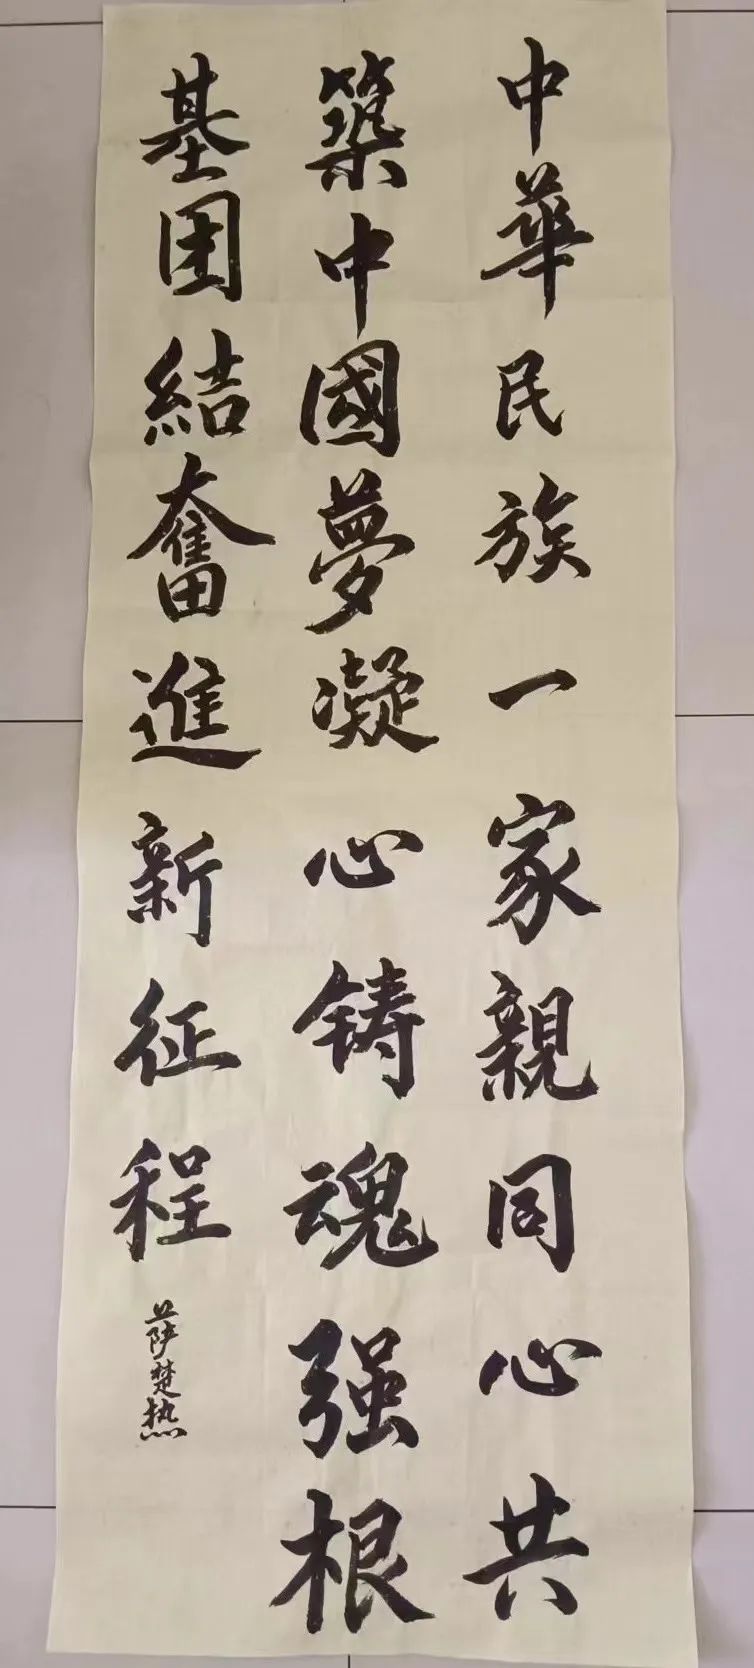 中華民族一家親同心共
築中國夢凝心铸魂强根
基团結奮進新征程
萨楚热